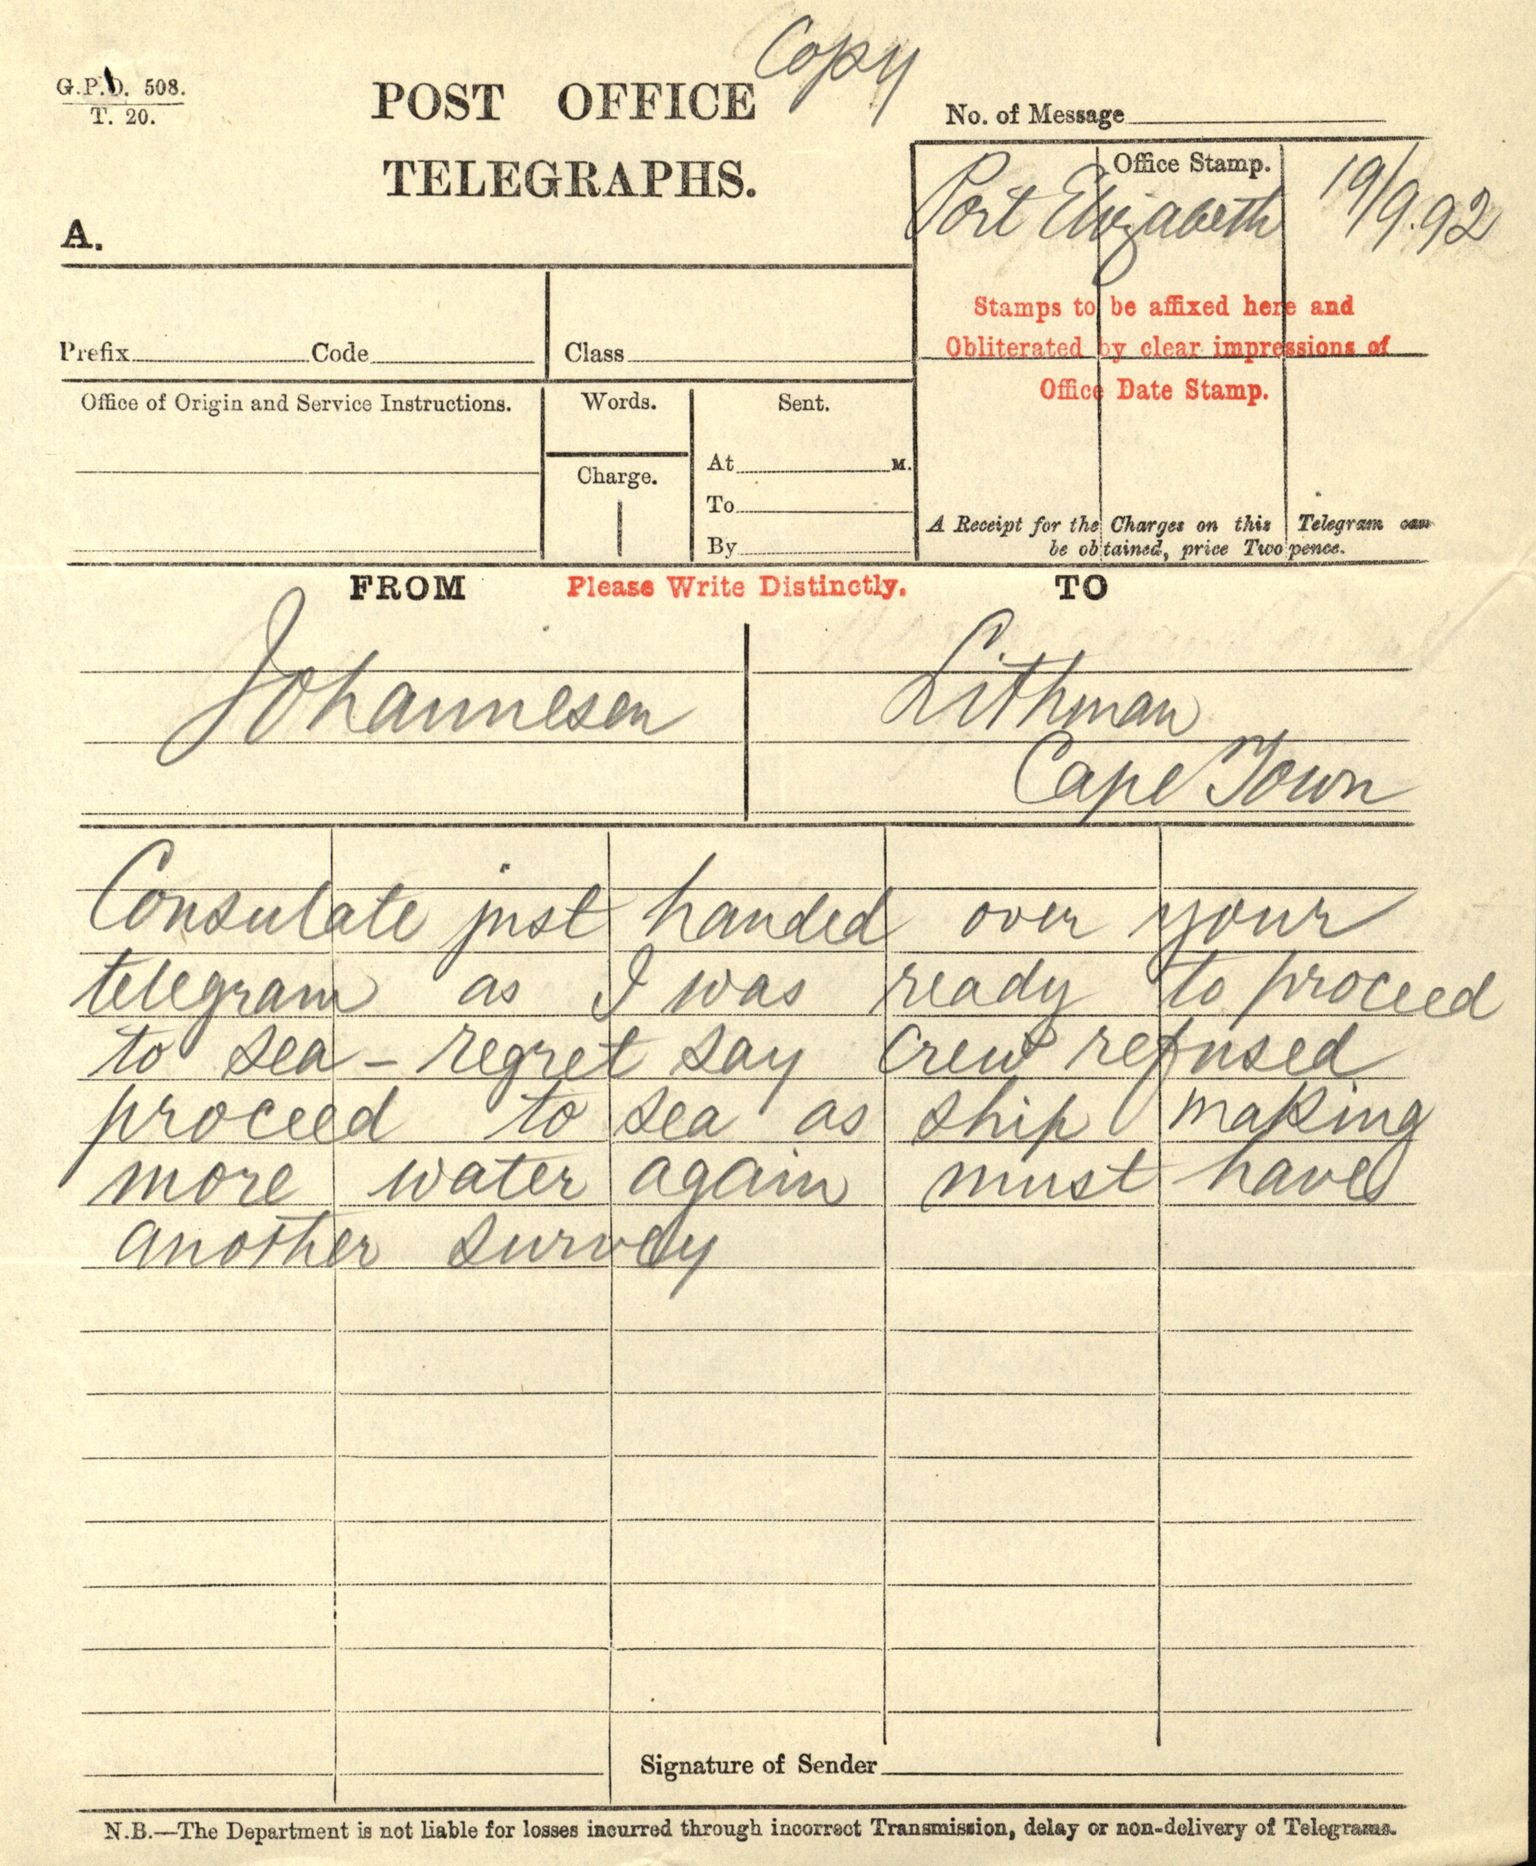 Copy
G.P.O. 508.
T. 20.
POST OFFICE
TELEGRAPHS.
No. of Message
A.
Office Stamp.
Port Elizabeth 19/9.92
Stamps to be affixed here and
Obliterated by clear impressions of
Office Date Stamp.
Prefix Code Class
Office of Origin and Service Instructions.
Words.
Charge.
Sent.
At M.
To
By
A Receipt for the Charges on this Telegram can
be obtained, price Twopence.
FROM Please Write Distinctly. TO
Johannesen
Lithman
Cape Town
Consulate just handed over your
telegram as I was ready to proceed
to sea - regret say crew refused
proceed to sea as ship making
more water again must have
another survey
Signature of Sender
N.B.—The Department is not liable for losses incurred through incorrect Transmission, delay or non-delivery of Telegrams.